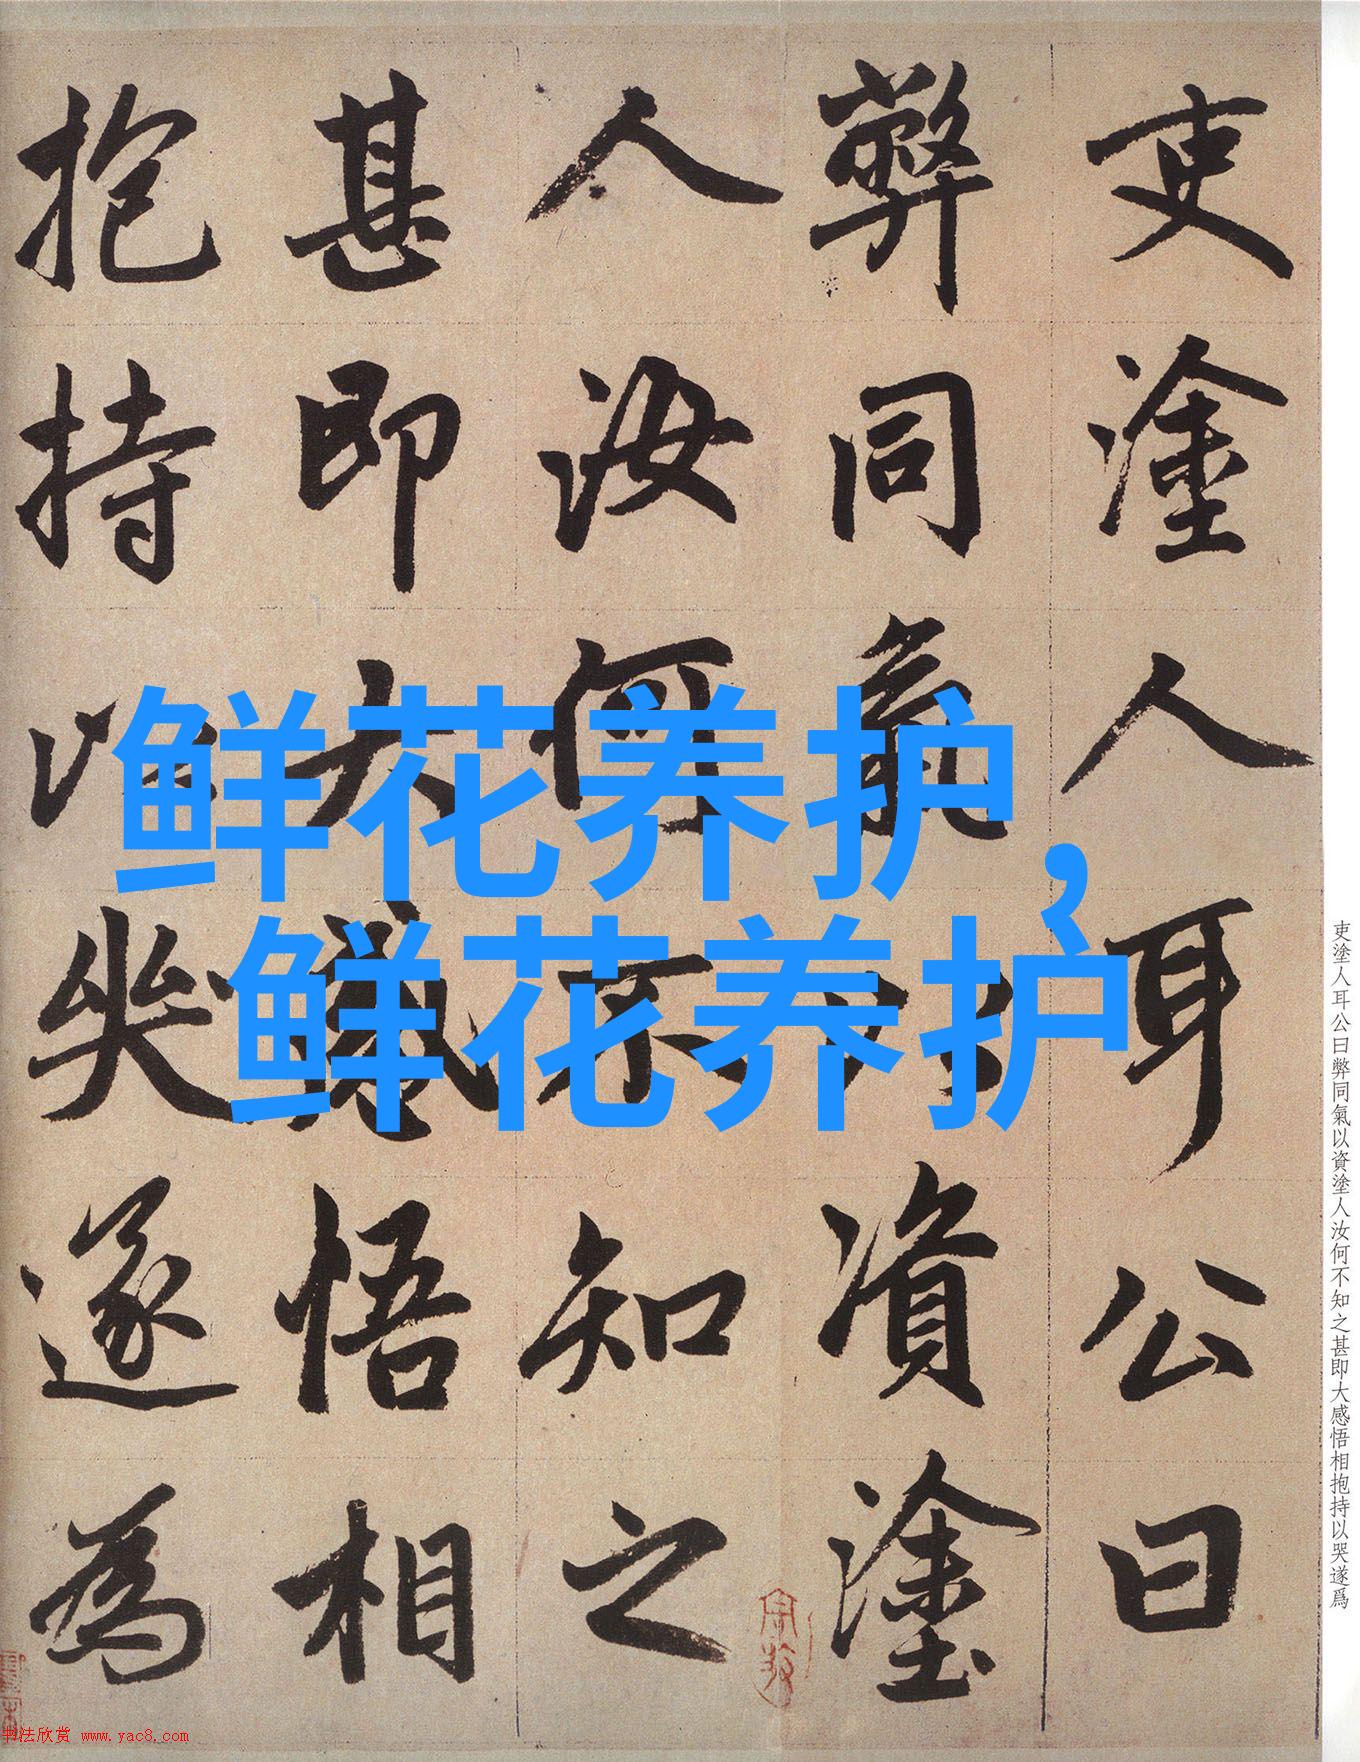 吏塗人耳公曰
弊同氣以資塗
人汝何不知之
甚即大感悟相
抱持以哭遂為
鲜花养护，
鲜花养护
吏塗人耳公曰弊同氣以資塗人汝何不知之甚即大感悟相抱持以哭遂爲
书法欣赏 www.yac8.com